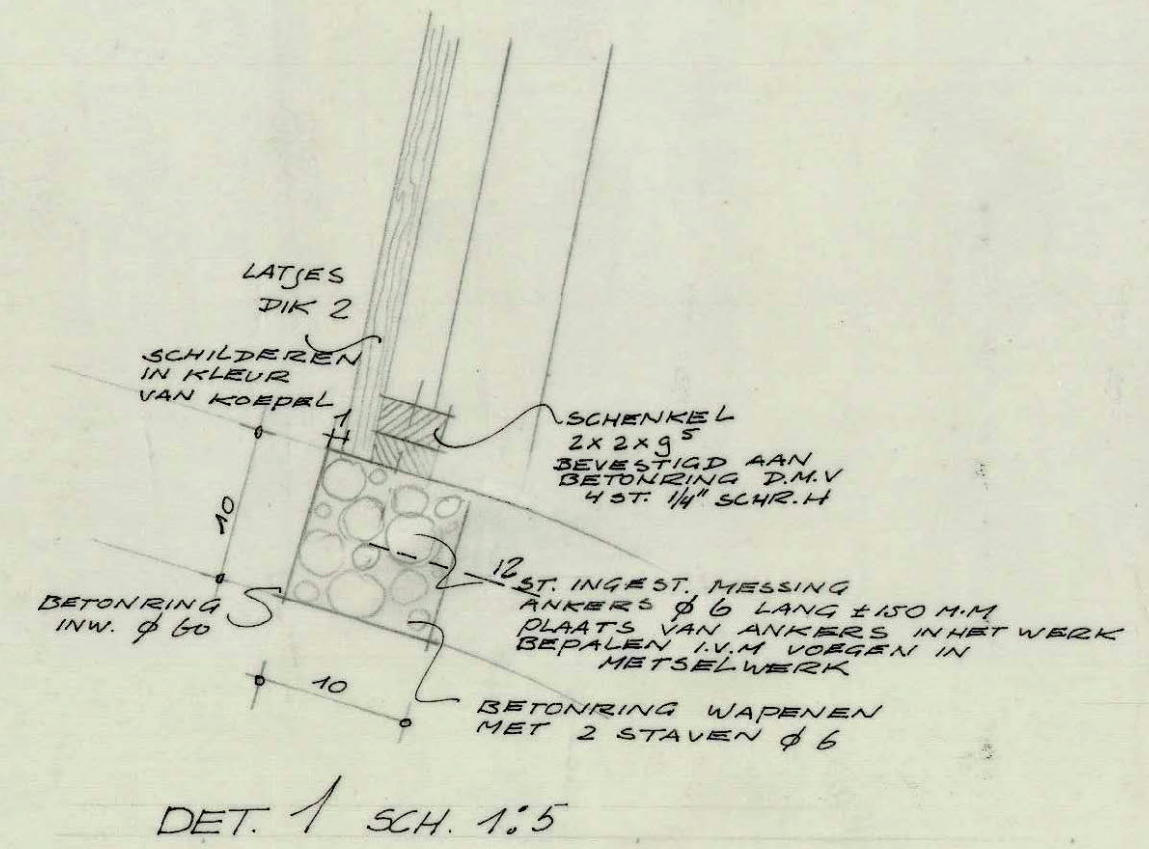 LATJES
DIK 2
SCHILDEREN
IN KLEUR
VAN KOEPEL
1
SCHENKEL
2 x 2 x 9⁵
BEVESTIGD AAN
BETONRING D.M.V
4 ST. 1/4" SCHR.H
10
12 ST. INGEST. MESSING
ANKERS ø 6 LANG ±150 M.M
PLAATS VAN ANKERS IN HET WERK
BEPALEN I.V.M VOEGEN IN
METSELWERK
BETONRING
INW. ø 60
10
BETONRING WAPENEN
MET 2 STAVEN ø 6
DET. 1 SCH. 1:5